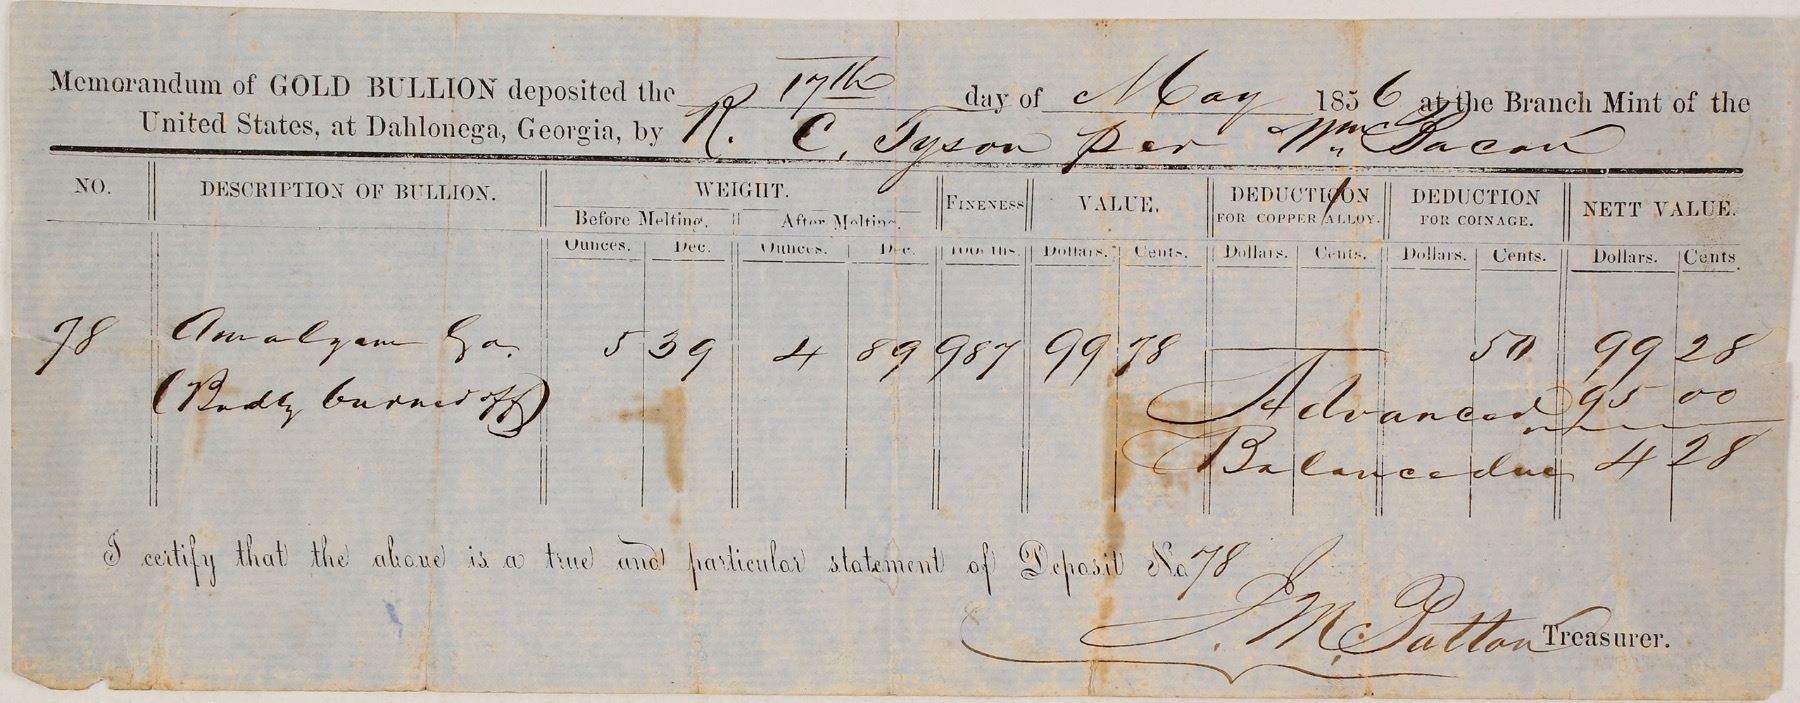 Memorandum of GOLD BULLION deposited the 17th day of May 1856 at the Branch Mint of the
United States, at Dahlonega, Georgia, by R. C. Tyson per Wm Bacon
NO. DESCRIPTION OF BULLION. WEIGHT. FINENESS VALUE. DEDUCTION FOR COPPER ALLOY. DEDUCTION FOR COINAGE. NETT VALUE.
Before Melting. After Melting.
Ounces. Dec. Ounces. Dec. 1000ths. Dollars. Cents. Dollars. Cents. Dollars. Cents. Dollars. Cents.
78 Amalgam Ga. 5 39 4 89 987 99 78 50 99 28
(Badly burned off) Advanced 95 00
Balance due 4 28
I certify that the above is a true and particular statement of Deposit No 78
J. M. Patton Treasurer.